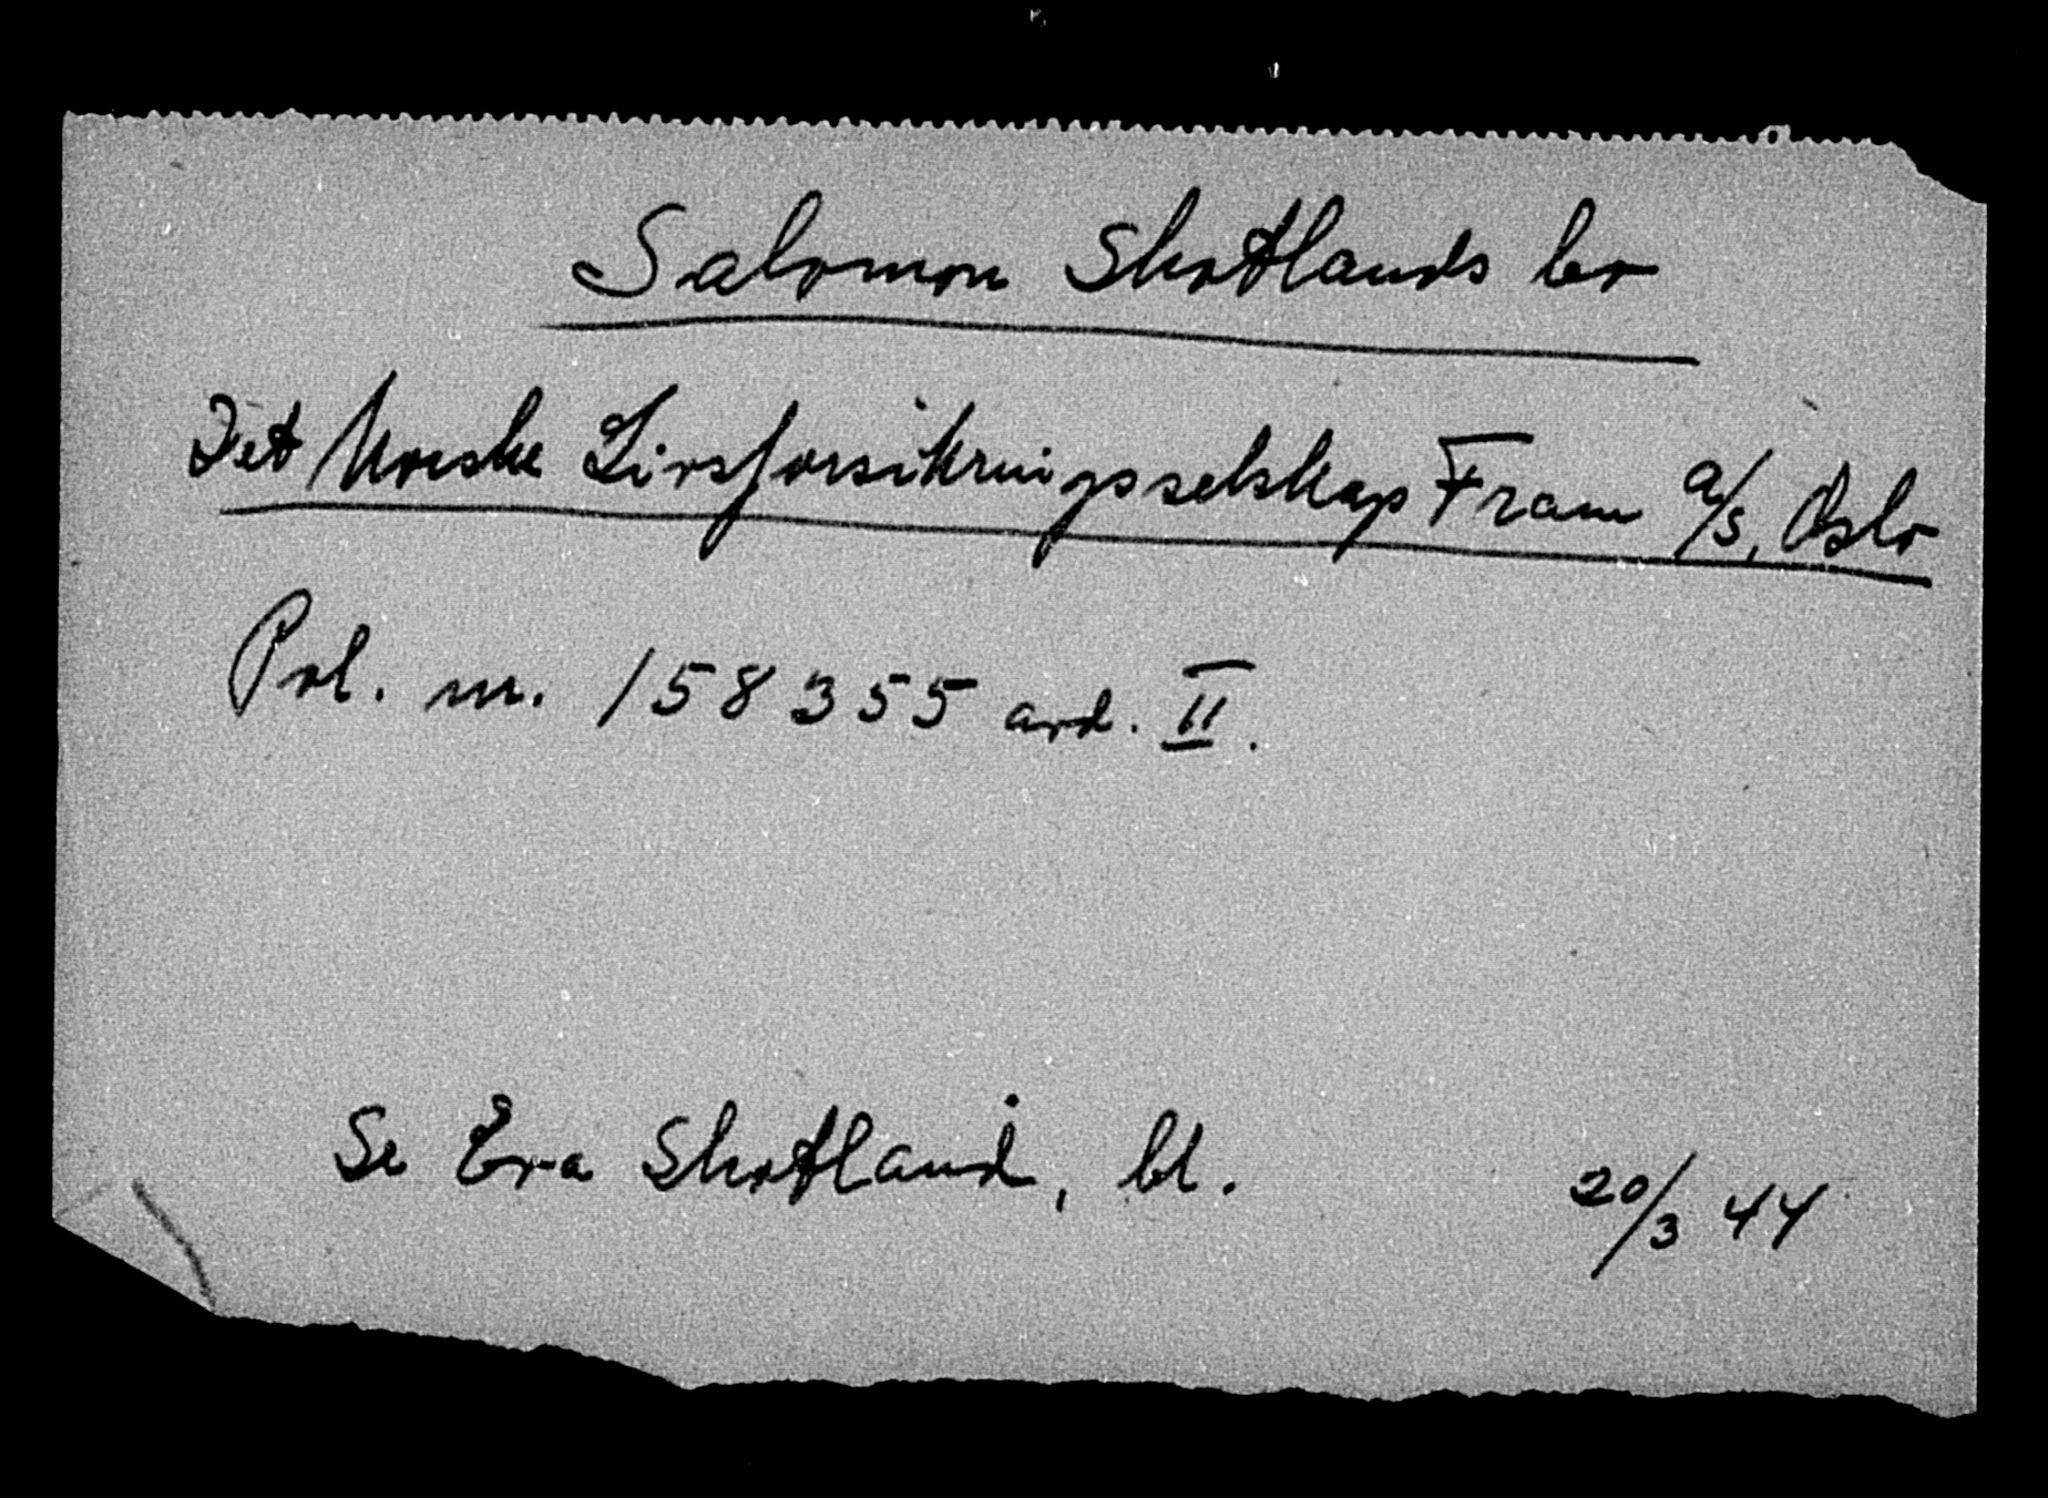 Salomon Skotlands bo
Det Norske Livsforsikringsselskap Fram a/s, Oslo
Pol. nr. 158355 avd. II.
Se Eva Skotland, bl.
20/3 44